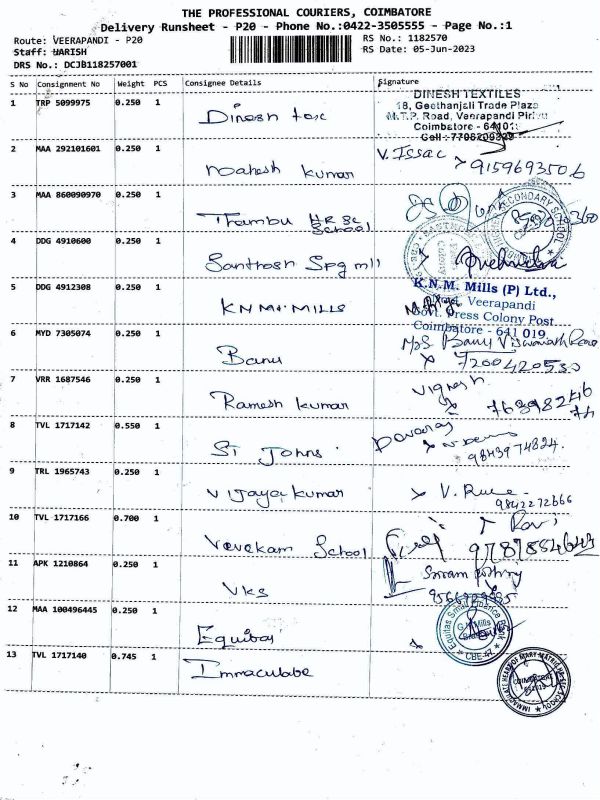 THE PROFESSIONAL COURIERS, COIMBATORE
Delivery Runsheet - P20 - Phone No.:0422-3505555 - Page No.:1
Route: VEERAPANDI - P20
RS No.: 1182570
Staff: HARISH
RS Date: 05-Jun-2023
DRS No.: DCJB118257001
S No Consignment No Weight PCS Consignee Details Signature
1 TRP 5099975 0.250 1 Dinesh tex
DINESH TEXTILES
18, Geethanjali Trade Plaza
M.T.P. Road, Veerapandi Pirivu
Coimbatore - 641019
2 MAA 292101601 0.250 1 Mahesh kumar
V. Issac
9159693506
3 MAA 860090970 0.250 1 Thambu HR SC School
4 DDG 4910600 0.250 1 Santhosh Spg mill
5 DDG 4912308 0.250 1 KNM. MILLS
K.N.M. Mills (P) Ltd.,
Veerapandi
Govt. Press Colony Post
Coimbatore - 641 019
6 MYD 7305074 0.250 1 Banu
7200420530
7 VRR 1687546 0.250 1 Ramesh kumar
Vignesh
8 TVL 1717142 0.550 1 St Johns
9843974824
9 TRL 1965743 0.250 1 Vijaya kumar
9842272666
10 TVL 1717166 0.700 1 Vevekam School
Ravi
11 APK 1210864 0.250 1 Vks
12 MAA 100496445 0.250 1 Equitas
Equitas Small Finance Bank
13 TVL 1717140 0.745 1 Immaculate